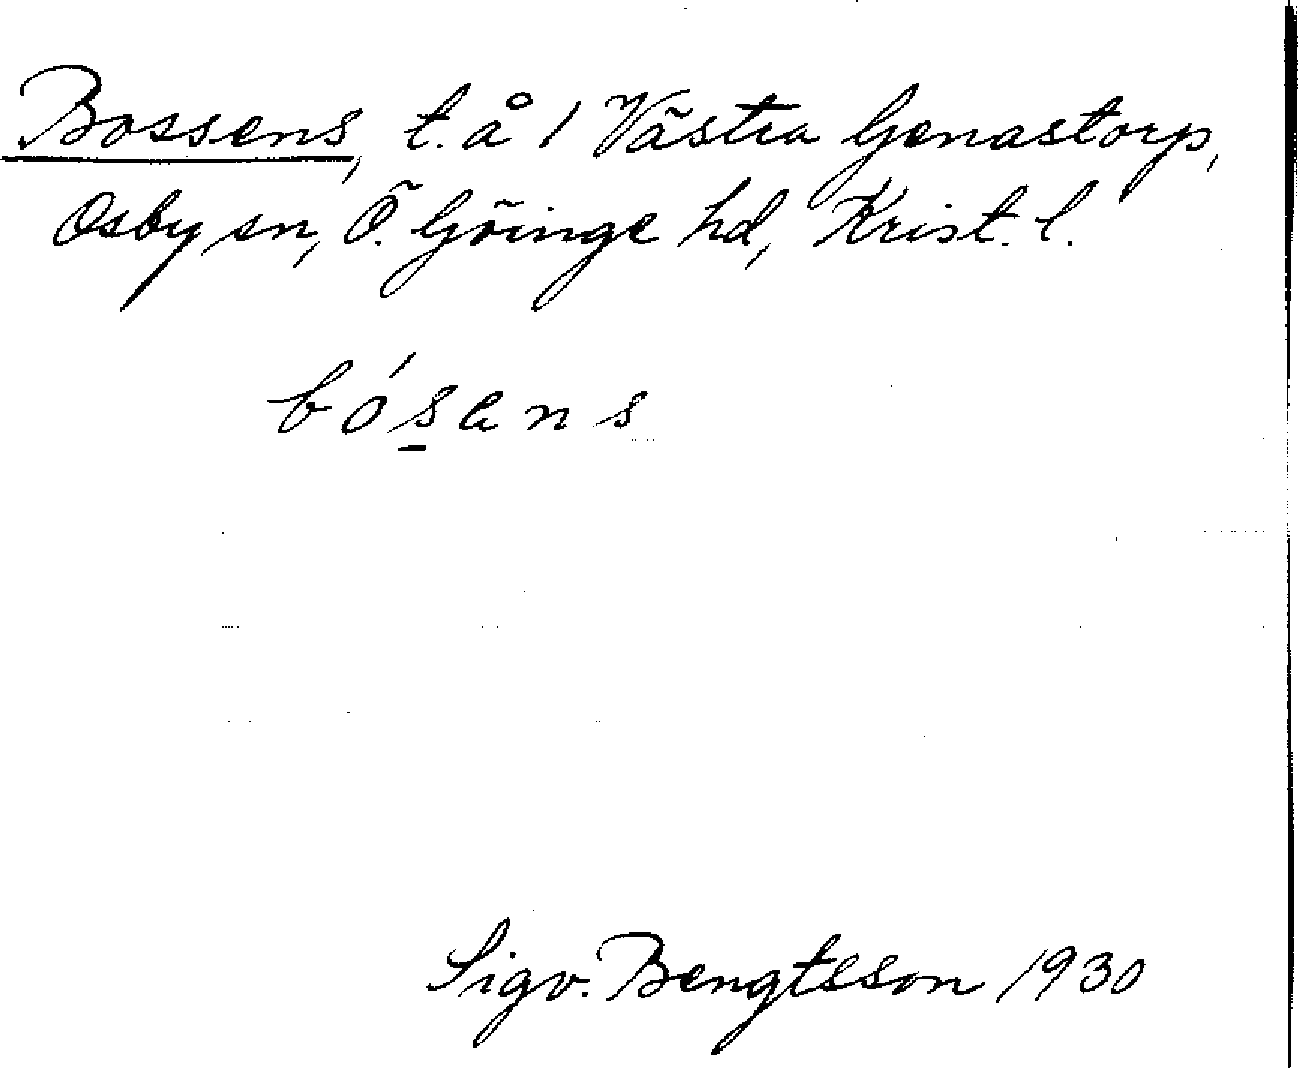 Bossens, t. å 1 Västra Genastorp,
Osby sn, Ö. Göinge hd, Krist. l.
bós̲ens
Sigv. Bengtsson 1930